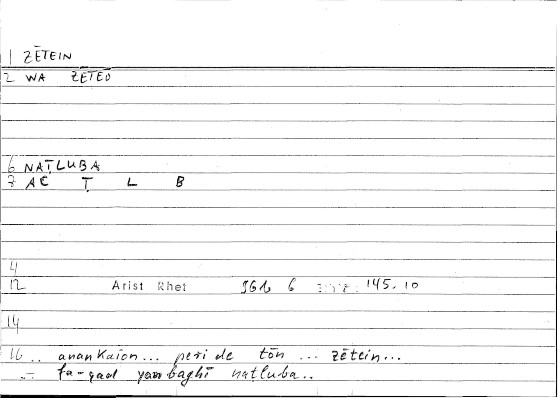 1 ZĒTEIN
2 WA ZĒTEŌ
6 NAṬLUBA
7 AC Ṭ L B
4
12 Arist Rhet 6 145.10
14
16 .. anankaion... peri de tōn ... zētein...
fa-qad yanbaghī naṭluba..